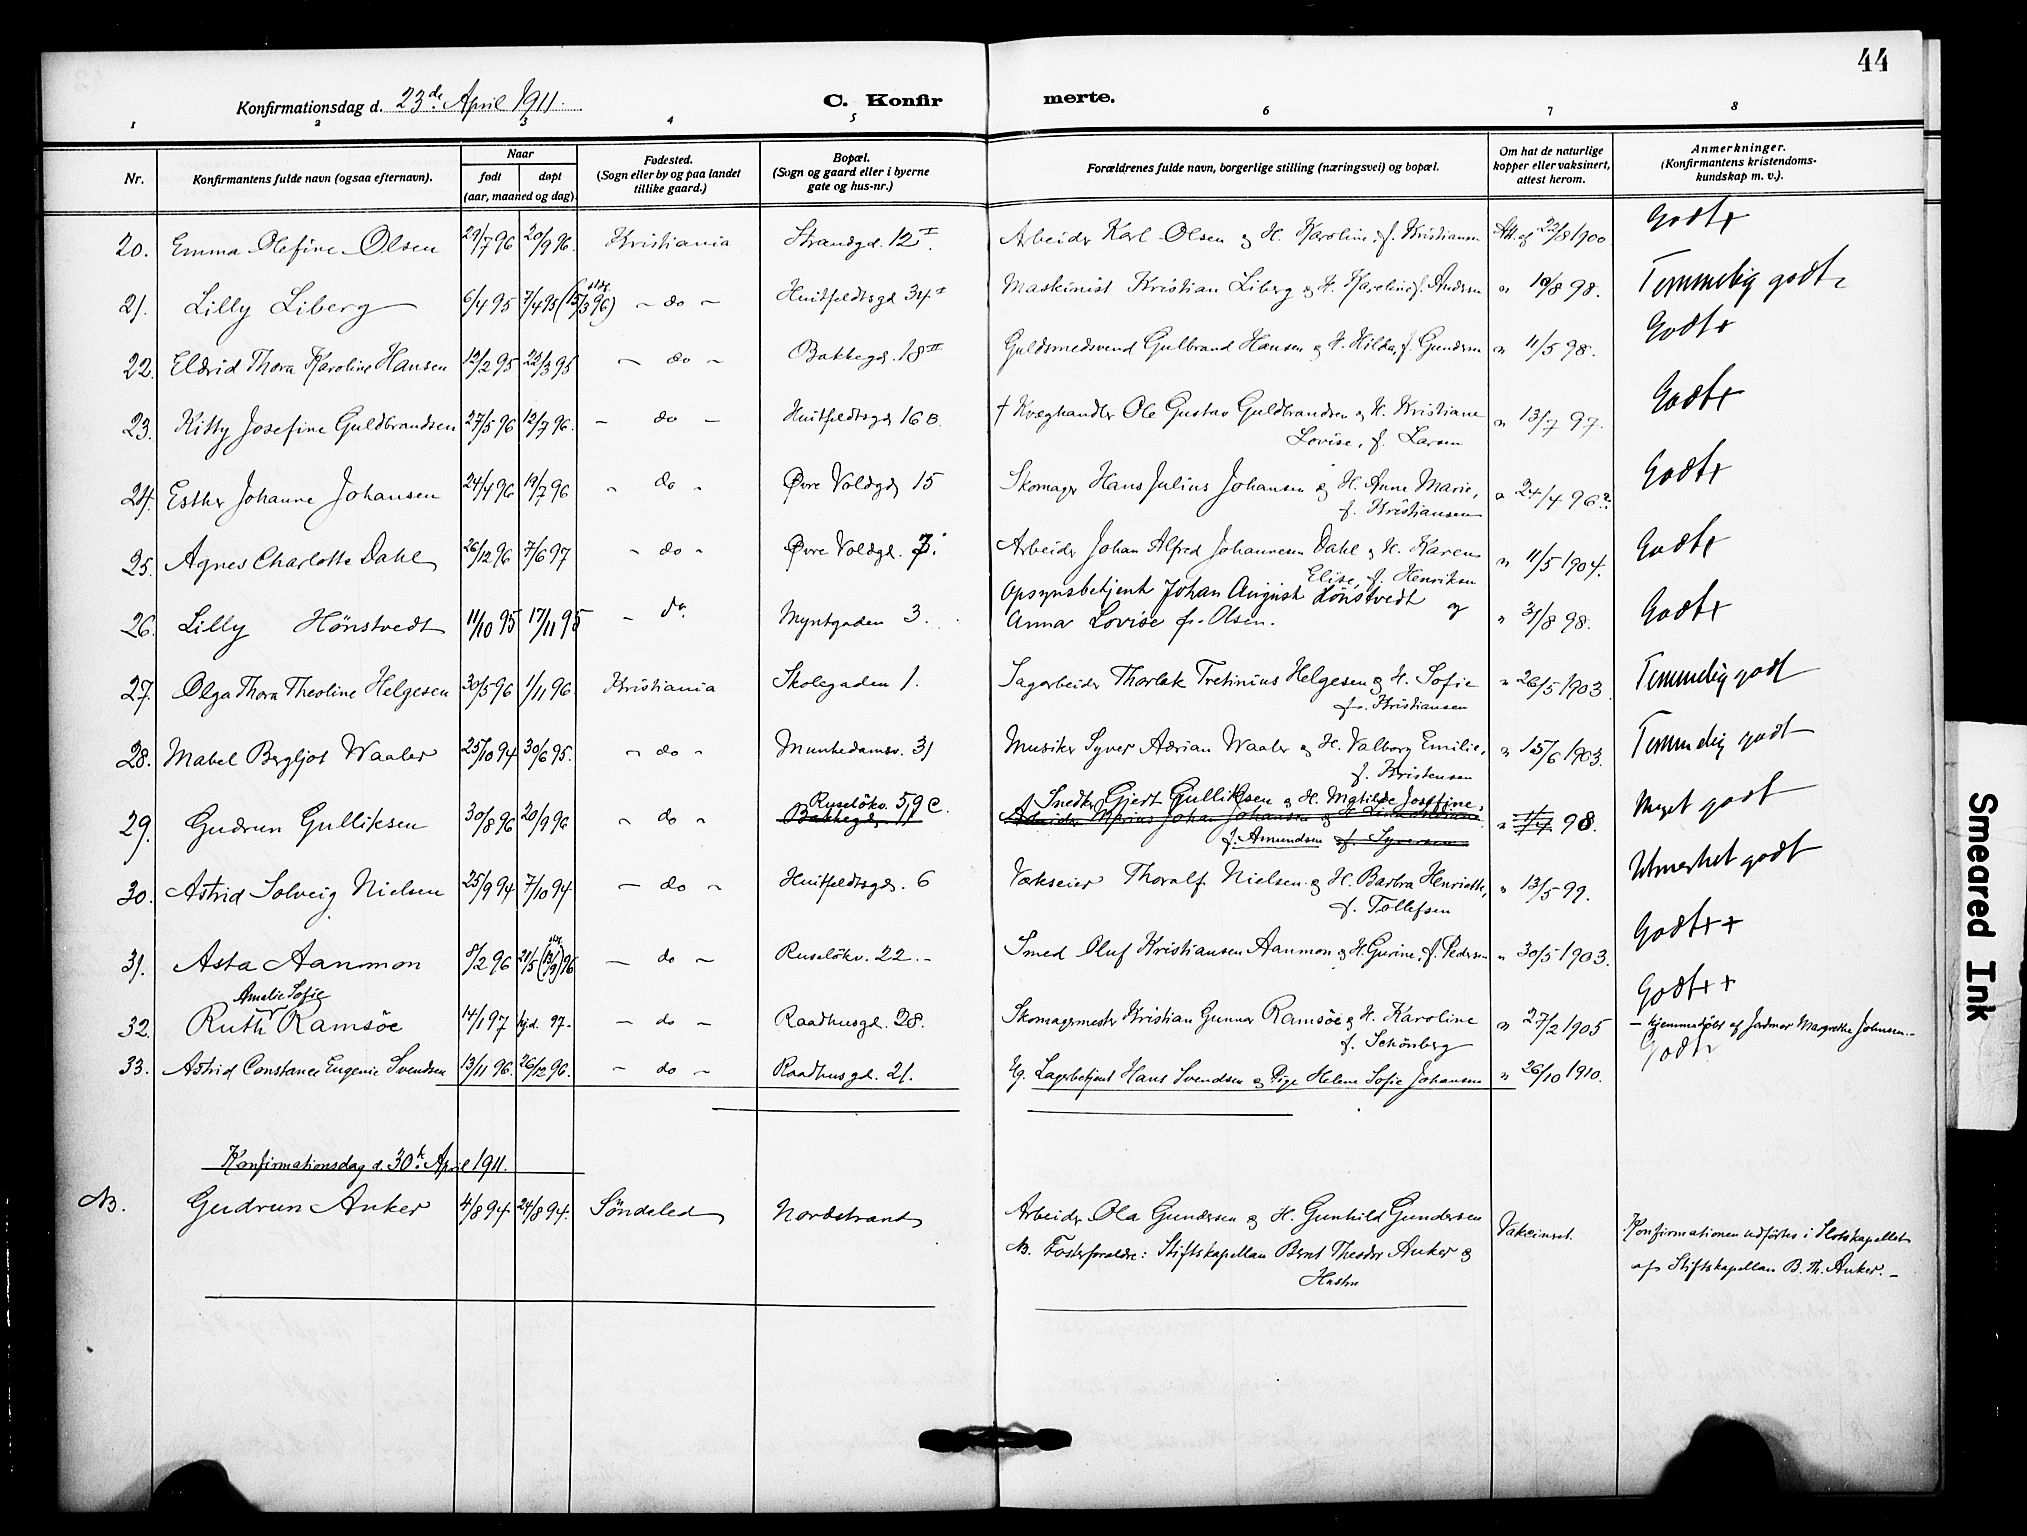 44
Konfirmationsdag d. 23de April 1911.
C. Konfir merte.
1 2 3 4 5 6 7 8
Nr. Konfirmantens fulde navn (ogsaa efternavn). Naar født døpt (aar, maaned og dag) Fødested. (Sogn eller by og paa landet tillike gaard.) Bopæl. (Sogn og gaard eller i byerne gate og hus-nr.) Forældrenes fulde navn, borgerlige stilling (næringsvei) og bopæl. Om hat de naturlige kopper eller vaksinert, attest herom. Anmerkninger. (Konfirmantens kristendoms-kundskap m. v.).
20. Emma Olefine Olsen 29/7 96 20/9 96. Kristiania Strandgd. 12 I. Arbeider Karl Olsen og H. Karoline, f. Kristiansen Att. af 22/8 1900. Godt+
21. Lilly Liberg 6/4 95 7/4 95 (15/3 96) - do - Huitfeldtsgd 34 I Maskinist Kristian Liberg og H. Karoline f. Andersen " 10/8 98. Temmelig godt
22. Eldrid Thora Karoline Hansen 12/2 95 22/3 95 - do - Bakkegd. 18 II Guldsmedsvend Gulbrand Hansen og H. Hilda, f. Gundersen " 11/5 98. Godt+
23. Kitty Josefine Guldbrandsen 27/5 96 12/7 96. - do - Huitfeldtsgd 16 B. † Kvæghandler Ole Gustav Guldbrandsen og H. Kristiane " 13/7 97. Godt+
Lovise, f. Larsen
24. Esther Johanne Johansen 24/4 96 19/7 96 " do " Øvre Voldgd 15 Skomager Hans Julius Johansen og H. Anne Marie, " 24/4 96? Godt+
f. Kristiansen
25. Agnes Charlotte Dahl 26/12 96 7/6 97 " do " Øvre Voldgd. 7. Arbeider Johan Alfred Johannesen Dahl og H. Karen " 11/5 1904. Godt+
Elise, f. Henriksen
26. Lilly Hönstvedt 11/10 95 17/11 95 - do. Myntgaden 3. Opsynsbetjent Johan August Hönstvedt og " 31/8 98. Godt+
Anna Lovise f. Olsen.
27. Olga Thora Theoline Helgesen 30/5 96 1/11 96. Kristiania Skolegaden 1. Sagarbeider Thorlak Tretinius Helgesen og H. Sofie " 26/5 1903. Temmelig godt
f. Kristiansen
28. Mabel Bergljot Waaler 25/10 94 30/6 95. " do " Munkedamsv. 31 Musiker Syver Adrian Waaler og H. Valborg Emilie, " 15/6 1903. Temmelig godt
f. Kristensen
Ruselökv. 59 C. Snedker Gjert Gulliksen og H. Matilde Josefine,
29. Gudrun Gulliksen 30/8 96 20/9 96 " do " Bakkegd Arbeider Marius Johan Johansen og H. " 98. Meget godt
f. Amundsen f. Syversen
30. Astrid Solveig Nielsen 25/9 94 7/10 94 - do " Huitfeldtsgd. 6 Værkseier Thoralf Nielsen og H. Barbra Henriette, " 13/5 99. Utmerket godt
f. Tollefsen
31. Asta Aanmon 8/2 96 21/5 (13/9) 96 - do - Ruselökv. 22. - Smed Oluf Kristiansen Aanmon og H. Gurine, f. Pedersen " 30/5 1903. Godt++
Amalie Sofie
32. Ruth Ramsöe 14/1 97 hjd. 97. - do - Raadhusgd. 28. Skomagermester Kristian Gunner Ramsöe og H. Karoline " 27/2 1905 Godt++
f. Schönberg - hjemmedøbt af Jordmor Margrethe Johnsen. -
33. Astrid Constance Eugenie Svendsen 13/11 96. 26/12 96. - do - Raadhusgd. 21. Ug. Lagerbetjent Hans Svendsen og Pige Helene Sofie Johansen " 26/10 1910. Godt
Konfirmationsdag d. 30te April 1911.
NB. Gudrun Anker 4/8 94 24/8 94. Söndeled Nordstrand Arbeider Ola Gundersen og H. Gunhild Gundersen Vakcineret. Konfirmationen udførtes i Slotskapellet
NB. Fosterforældre: Stiftskapellan Bernt Theodor Anker og af Stiftskapellan B. Th. Anker. -
Hustru
Smeared Ink